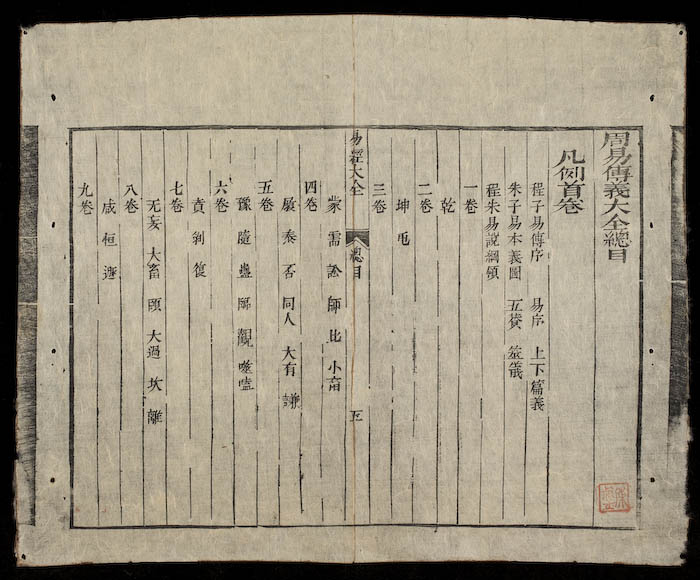 周易傳義大全總目
凡例首卷
程子易傳序 易序 上下篇義
朱子易本義圖 五賛 筮儀
程朱易說綱領
一卷
乾
二卷
坤 屯
三卷
蒙 需 訟 師 比 小畜
易經大全 總目 五
四卷
履 泰 否 同人 大有 謙
五卷
豫 隨 蠱 臨 觀 噬嗑
六卷
賁 剝 復
七卷
无妄 大畜 頤 大過 坎 離
八卷
咸 恒 遯
九卷